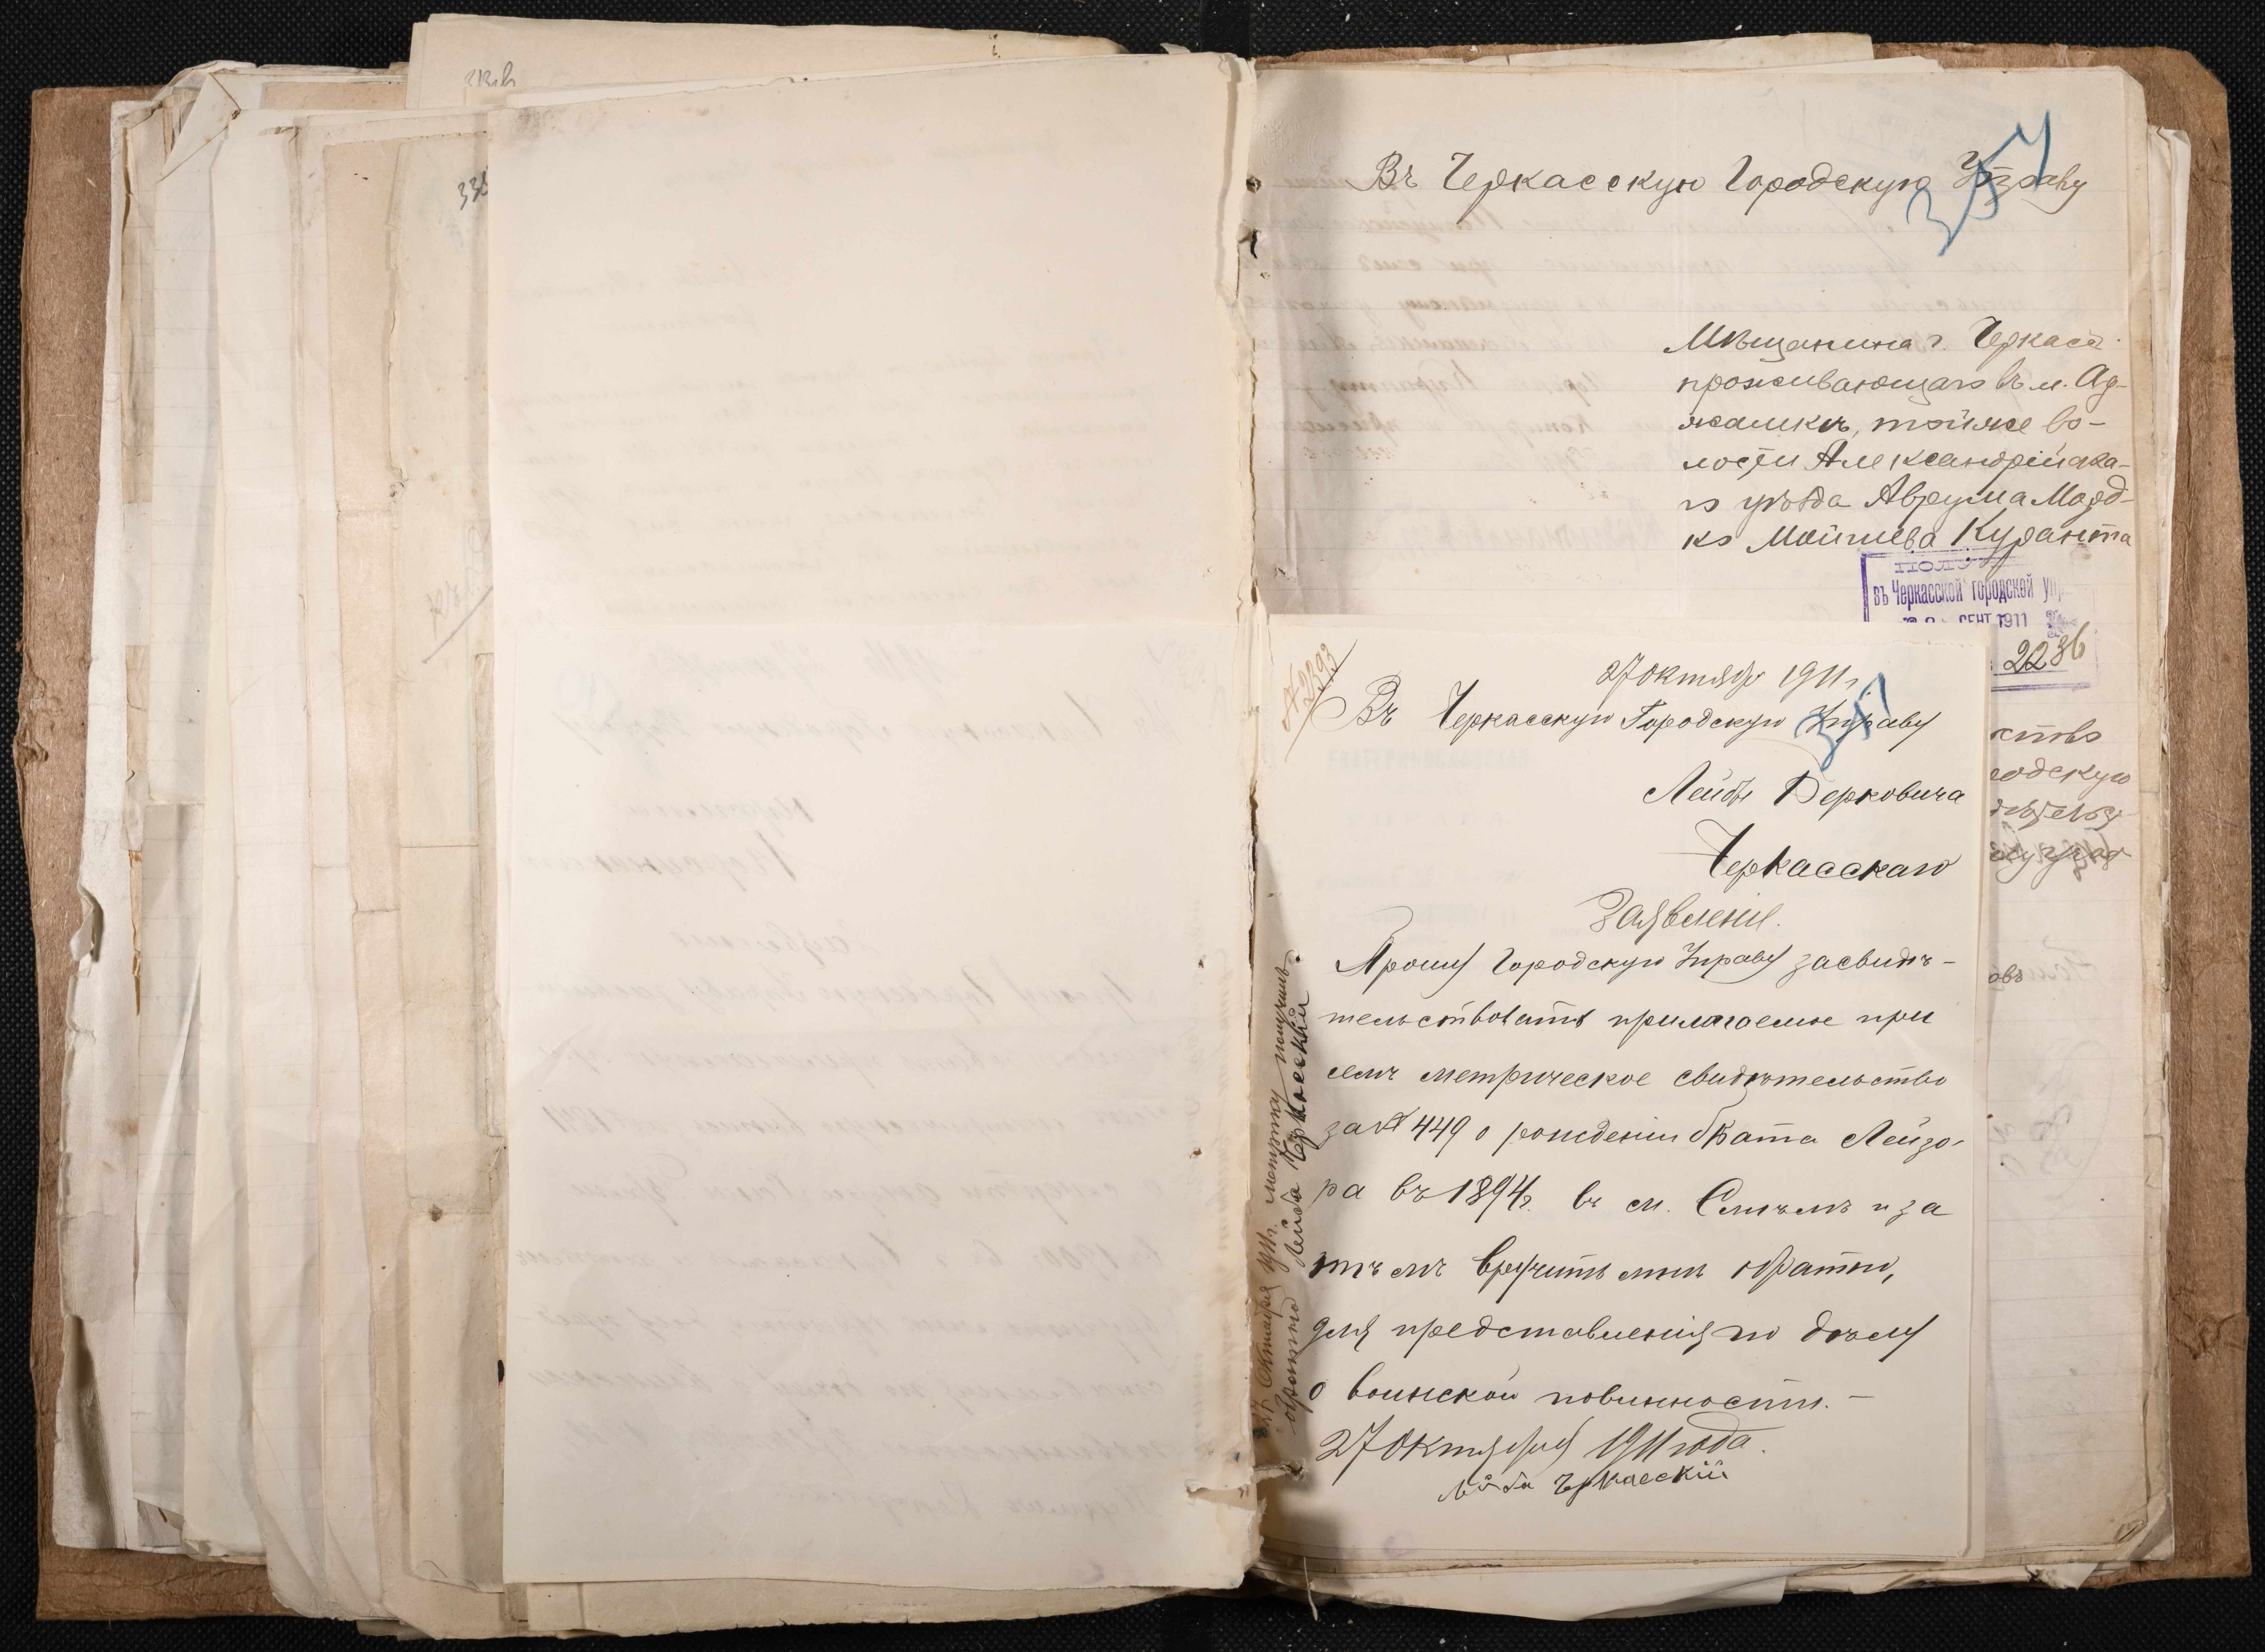 Въ Черкасскую Городскую Управу
Мѣщанина г. Черкасъ
проживающаго въ м. Ад-
жамкѣ, тойже во-
лости Александрійска-
го уѣзда Аврума Морд-
ко Мойшева Куранта
въ Черкасской городской упр
СЕНТ 1911
2286
одскую
№ 2393
27 Октября 1911 г.
Въ Черкасскую Городскую Управу
Лейбы Берковича
Черкасскаго
Заявленіе.
Прошу Городскую Управу засвидѣ-
тельствовать прилагаемое при
семъ метрическое свидѣтельство
за № 449 о рожденіи брата Лейзо-
ра въ 1894 г. въ м. Смѣлѣ и за
тѣмъ вручить мнѣ обратно,
для представленія по дѣлу
о воинской повинности. —
27 Октября 1911 года.
Лейба Черкасскій
27 Октября 1911 г. метрику получилъ
обратно Лейба Черкасскій